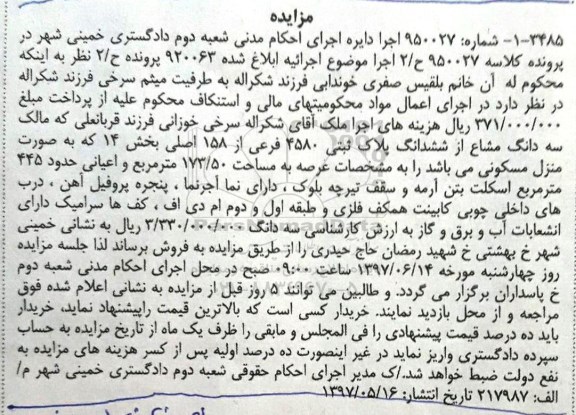 مزایده
۱-۳۴۸۵- شماره: ۹۵۰۰۲۷ اجرا دایره اجرای احکام مدنی شعبه دوم دادگستری خمینی شهر در
پرونده کلاسه ۹۵۰۰۲۷ ح/۲ اجرا موضوع اجرائیه ابلاغ شده ۹۲۰۰۶۳ پرونده ح/۲ نظر به اینکه
محکوم له آن خانم بلقیس صفری خوندابی فرزند شکراله به طرفیت میثم سرخی فرزند شکراله
در نظر دارد در اجرای اعمال مواد محکومیتهای مالی و استنکاف محکوم علیه از پرداخت مبلغ
۳۷۱/۰۰۰/۰۰۰ ریال هزینه های اجر ملک آقای شکراله سرخی خوزانی فرزند قربانعلی که مالک
سه دانگ مشاع از ششدانگ پلاک ثبتی ۴۵۸۰ فرعی از ۱۵۸ اصلی بخش ۱۴ که به صورت
منزل مسکونی می باشد را به مشخصات عرصه به مساحت ۱۷۳/۵۰ مترمربع و اعیانی حدود ۴۴۵
مترمربع اسکلت بتن آرمه و سقف تیرچه بلوک ، دارای نما آجرنما ، پنجره پروفیل آهن ، درب
های داخلی چوبی کابینت همکف فلزی و طبقه اول و دوم ام دی اف ، کف ها سرامیک دارای
انشعابات آب و برق و گاز به ارزش کارشناسی سه دانگ ۳/۳۳۰/۰۰۰/۰۰۰ ریال به نشانی خمینی
شهر خ بهشتی خ شهید رمضان حاج حیدری را از طریق مزایده به فروش برساند لذا جلسه مزایده
روز چهارشنبه مورخه ۱۳۹۷/۰۶/۱۴ ساعت ۰۹:۰۰ صبح در محل اجرای احکام مدنی شعبه دوم
خ پاسداران برگزار می گردد. و طالبین می توانند ۵ روز قبل از مزایده به نشانی اعلام شده فوق
مراجعه و از محل بازدید نمایند. خریدار کسی است که بالاترین قیمت راپیشنهاد نماید، خریدار
باید ده درصد قیمت پیشنهادی را فی المجلس و مابقی را ظرف یک ماه از تاریخ مزایده به حساب
سپرده دادگستری واریز نماید در غیر اینصورت ده درصد اولیه پس از کسر هزینه های مزایده به
نفع دولت ضبط خواهد شد./ک مدیر اجرای احکام حقوقی شعبه دوم دادگستری خمینی شهر م/
الف: ۲۱۷۹۸۷ تاریخ انتشار: ۱۳۹۷/۰۵/۱۶